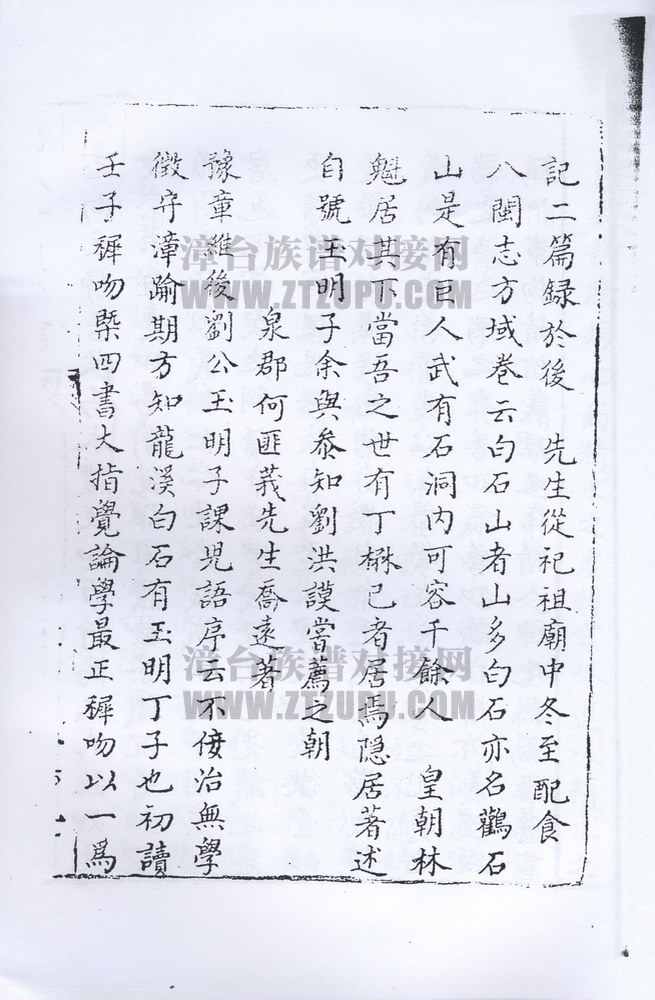 記二篇録於後　先生從祀祖廟中冬至配食
八閩志方域卷云白石山者山多白石亦名鸛石
山是有巨人武有石洞内可容千餘人　皇朝林
魁居其下當吾之世有丁楙已者居焉隐居著述
自號玉明子余與叅知劉洪謨嘗薦之朝
泉郡何匪莪先生喬遠著
豫章維後劉公玉明子課兒語序云不佞治無學
徵守漳踰期方知龍溪白石有玉明丁子也初讀
壬子穉吻槩四書大指覺論學最正穉吻以一爲
漳台族谱对接网
WWW.ZTZUPU.COM
漳台族谱对接网
WWW.ZTZUPU.COM